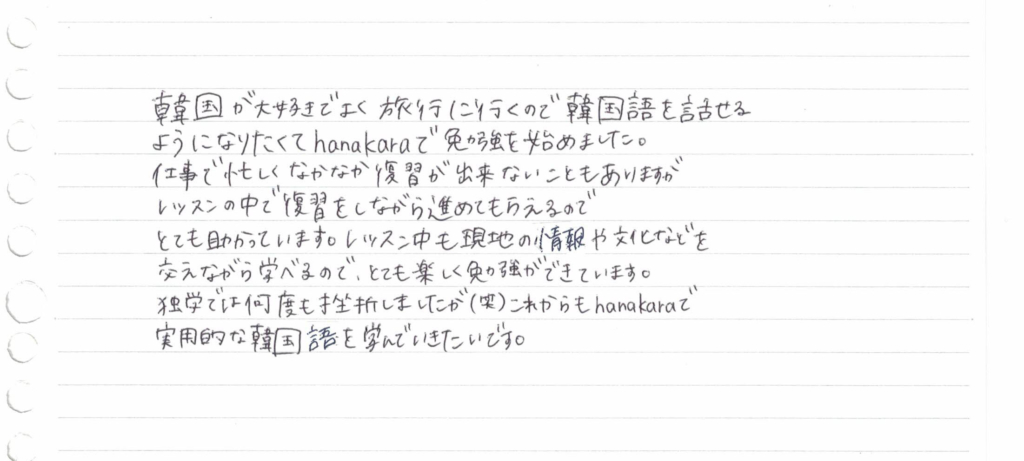 韓国が大好きでよく旅行に行くので韓国語を話せる
ようになりたくてhanakaraで勉強を始めました。
仕事で忙しくなかなか復習が出来ないこともありますが
レッスンの中で復習をしながら進めてもらえるので
とても助かっています。レッスン中も現地の情報や文化などを
交えながら学べるので、とても楽しく勉強ができています。
独学では何度も挫折しましたが(笑)これからもhanakaraで
実用的な韓国語を学んでいきたいです。